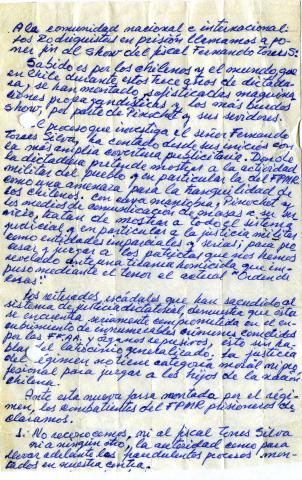 A la comunidad nacional e internacional:
los Rodriguistas en prisión llamamos a po-
ner fin al show del fiscal Fernando Torres Si
Sabido es por los chilenos y el mundo que
en Chile durante estos trece años de dictadu
ra, se han montado sofisticadas maquina
ciones propagandísticas y los más burdos
show, por parte de Pinochet y sus servidores.
El proceso que investiga el señor Fernando
Torres Silva, ha contado desde sus inicios con
la más amplia cobertura publicitaria. Donde
la dictadura pretende mostrar a la actividad
militar del pueblo y en particular la del FPMR
como una amenaza para la tranquilidad de
los chilenos. Con esta maniobra, Pinochet y
los medios de comunicación de masas a su ser
vicio, tratan de mostrar a todo el sistema
judicial, y en particular a la justicia militar
como entidades imparciales y serias; para pe
sar y juzgar a los patriotas que nos hemos
revelado ante una tiranía homicida que im-
puso mediante el terror el actual "Orden de
cosas".
Los reiterados escándalos que han sacudido al
sistema de justicia dictatorial, demuestra que ésta
se encuentra seriamente comprometida en el en
cubrimiento de innumerables crímenes cometidos
por las FFAA; y órganos represivos, esto sin ha
blar de la corrupción generalizada. La justicia
del régimen, no tiene categoría moral ni pro
fesional para juzgar a los hijos de la nación
chilena.
Ante esta nueva farsa montada por el régi-
men, los combatientes del FPMR prisioneros de
claramos.
1.- No reconocemos, ni al fiscal Torres Silva
ni a ningún otro, la autoridad como para
llevar adelante los fraudulentos procesos mon-
tados en nuestra contra.